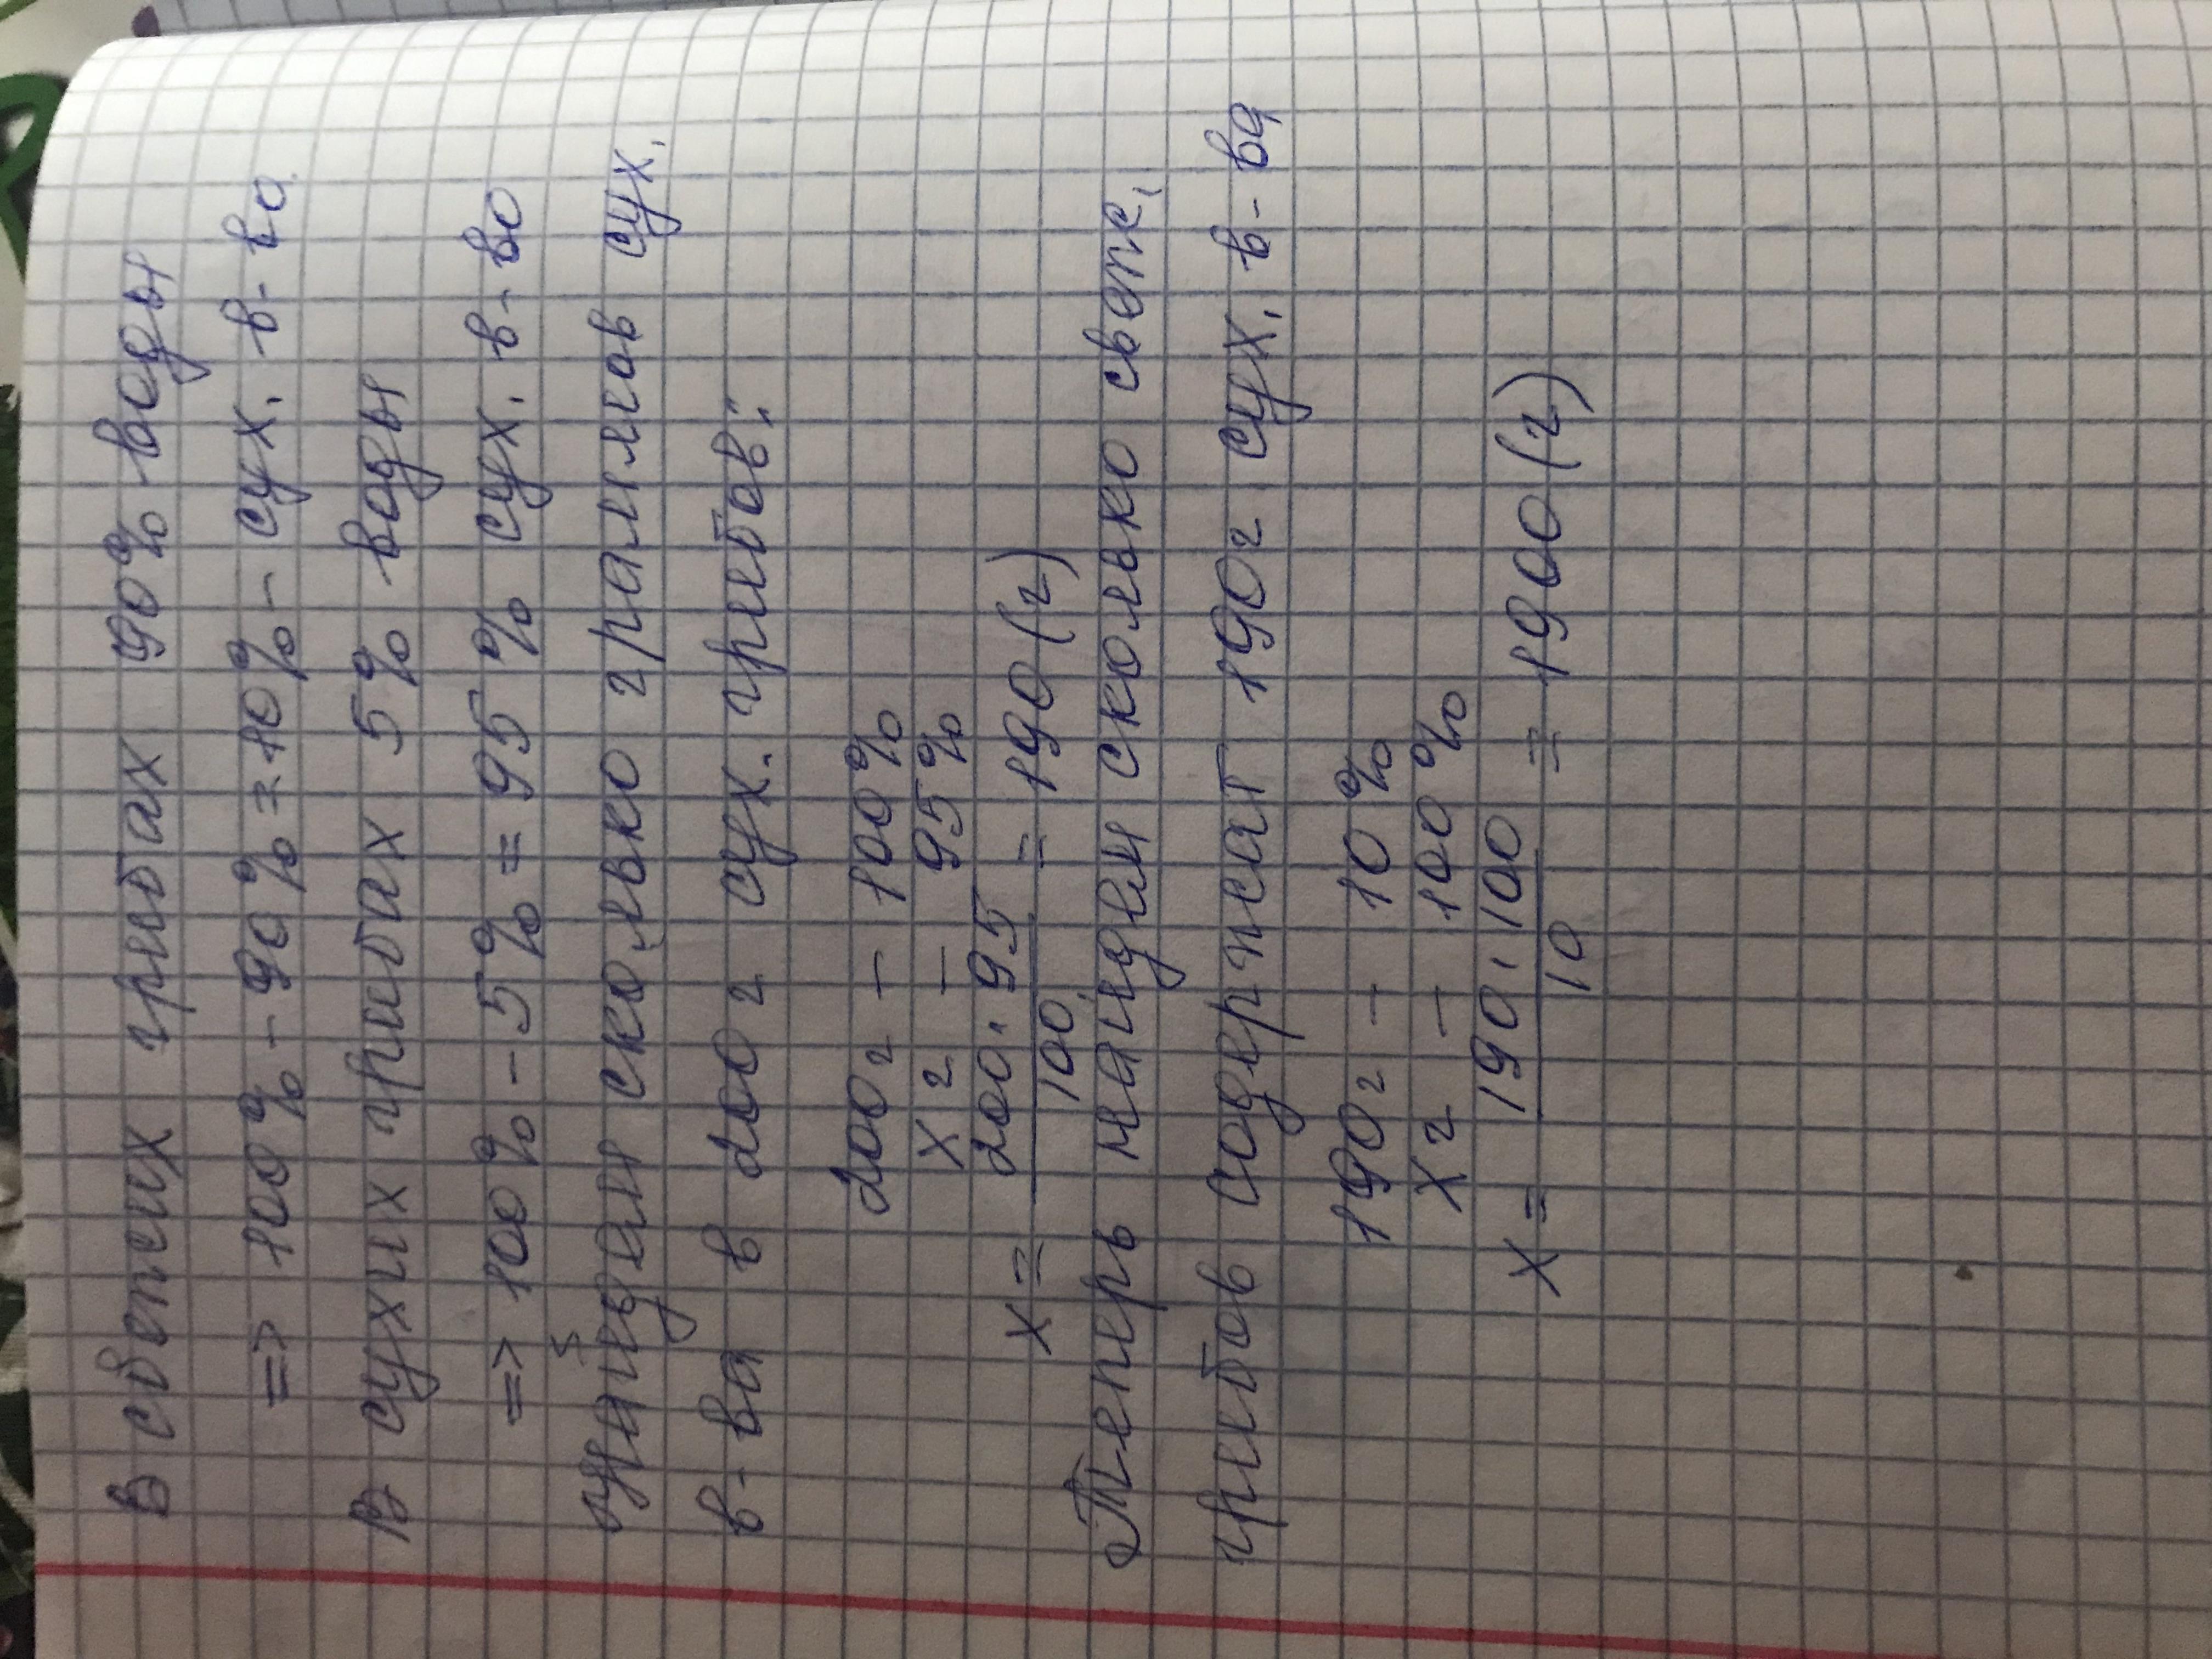 В свежих грибах 90% воды
=> 100% - 90% = 10% - сух. в-во
В сухих грибах 5% воды
=> 100% - 5% = 95% сух. в-во
найдем сколько граммов сух.
в-ва в 200 г сух. грибов:
200 г - 100%
х г - 95%
х = 200 · 95 / 100 = 190 (г)
Теперь найдем сколько свеж.
грибов содержат 190 г сух. в-ва
190 г - 10%
х г - 100%
х = 190 · 100 / 10 = 1900 (г)